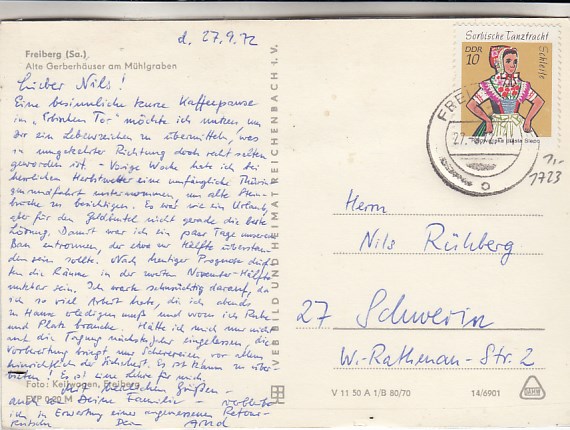 d. 27.9.72
Freiberg (Sa.)
Alte Gerberhäuser am Mühlgraben
Lieber Nils!
Eine besinnliche kurze Kaffeepause
im „ Tor" möchte ich nutzen, um
dir ein Lebenszeichen zu übermitteln, was
in umgekehrter Richtung doch recht selten
geworden ist. - Vorige Woche habe ich bei
herrlichem Herbstwetter eine umfängliche Thürin-
gen unternommen, um alte Stein-
brüche zu besichtigen. Es war wie ein Urlaub,
aber für den Geldbeutel nicht gerade die beste
Lösung. Damit war ich ein paar Tage unserem
Bau entronnen, der etwa zur Hälfte überstan-
den sein sollte. Nach heutiger Prognose dürf-
ten die Räume in der zweiten November-Hälfte
nutzbar sein. Ich warte sehnsüchtig darauf, da
ich so viel Arbeit habe, die ich abends
zu Hause erledigen muß und wozu ich Ruhe
und Platz brauche. Hätte ich mich nur nicht
auf die Tagung nächstes Jahr eingelassen, die
Vorbereitung bringt nur Scherereien vor allem
hinsichtlich der Es ist kaum zu über-
bieten! Es ist eine Lehre für mich.
Mit herzlichen Grüßen -
auch an Deine Familie - verbleibe
ich in Erwartung einer angemessenen Retour-
kutsche Dein Arnd
Foto: Keilwagen, Freiberg
EVP 0,20 M
VEB BILD UND HEIMAT REICHENBACH I. V.
Sorbische Tanztracht
Schleife
DDR
10
FREI
27.
1723
Herrn
Nils Rühberg
27 Schwerin
W.-Rathenau-Str. 2
V 11 50 A 1/B 80/70
14/6901